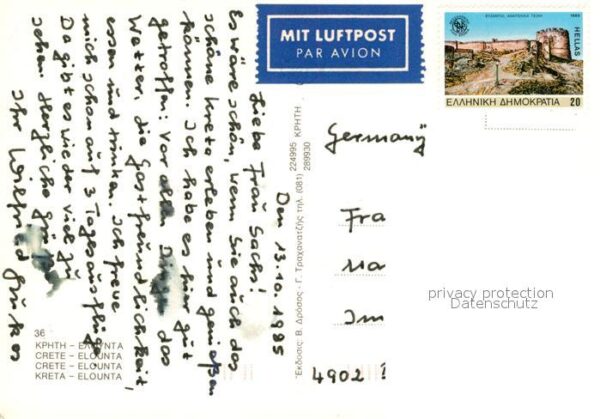 MIT LUFTPOST
PAR AVION
1985
ΕΛΛΑΣ HELLAS
ΕΛΛΗΝΙΚΗ ΔΗΜΟΚΡΑΤΙΑ 20
Den, 13.10.1985
Liebe Frau Sachs!
Es wäre schön, wenn Sie auch das
schöne Kreta erleben und genießen
können. Ich habe es hier gut
getroffen: Vor allen Dingen das
Wetter, die Gastfreundlichkeit,
essen und trinken. Ich freue
mich schon auf 3 Tagesausflüge.
Da gibt es wieder viel zu
sehen. Herzliche Grüße
Ihr Wilfried
36
ΚΡΗΤΗ - ΕΛΟΥΝΤΑ
CRETE - ELOUNTA
CRETE - ELOUNTA
KRETA - ELOUNTA
Έκδοσις: Β. Δρόσος - Γ. Τραχανατζής τηλ. (081) 224995 ΚΡΗΤΗ
289930
Germany
Fra
Ma
Im
4902
privacy protection
Datenschutz